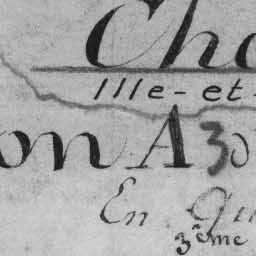 Cho
Ille-et-
on A 30
En Qu
3ème